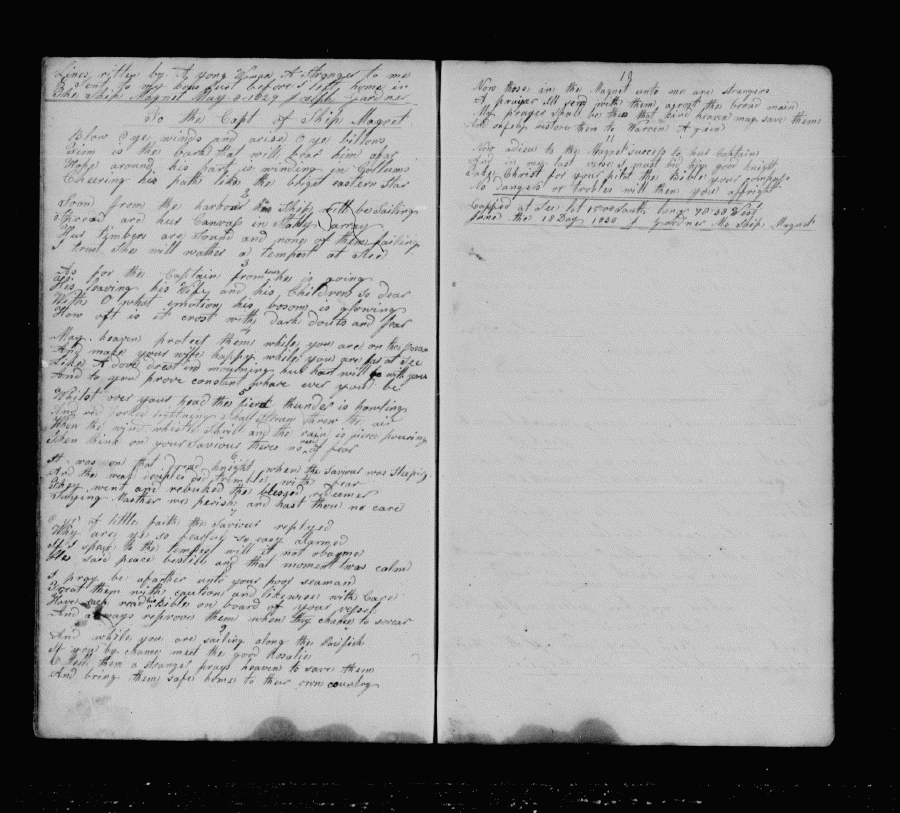 Lines ritten by A yong Woman A Stranger to me
Sent to my boy just before I left home in
The Ship Magnet May 2 1829 Joseph Gardner
To the Capt of Ship Magnet
Blow O ye winds and arise O ye billows
Firm is the bark that will bear him afar
Hope around his part is winding in
Cheering his path like the bright eastern Star
2
Soon from the harbour his Ship will be Sailing
Spread are hur Canvass in Stately array
Hur timbers are Sound and none of them failing
I trust She will wather a tempest at Seea
3
As for the Captain from home he is going
His leaving his Wife and his Children so dear
With O what emotion his bosom is glowing
How oft is it crost with dark douts and fear
4
May heaven protect them while you are on the Ocean
And make your wife happy while you are far at See
Like A dove drest in mourning hur hart will be with you
And to you prove constant whare ever you be
5
Whilst over your head the fierce thunder is howling
And red forked lightning threw the air
When the wind whistle Shrill and the rain is fierce pouring
Then think on your Saviour theres no need of fear
6
It was on that knight when the Saviour was Sleeping
And the weak deciples did tremble with fear
They went and rebuked the blessed redeemer
Saying Masther we perish and hast thou no care
7
O ye of little faith the Saviour replyed
Why are ye so fearful so easy alarmed
If I speak to the tempest will it not obay me
He said peace bestill and that moment was calm
I pray be afarther unto your poor seaman
Treat them with caution and likewise with Care
Have read the Bible on board of your vessel
And always reprove them when they chance to swear
9
And while you are sailing along the Pasifick
If you by chance meet the good Rosalie
O tell them a stranger prays heaven to save them
And bring them safe home to their own country
10
Now those in the Magnet unto me are strangers
A prayer Ill send with them acrost the broad main
My prayer Shall be this that kind heaven may save them
And safely restore them to Warren A gain
11
Now adieu to the Magnet success to hur Captain
And in my last verse I must bid you good knight
Take Christ for your pilot the Bible your compass
No Dangers or trobles will then you affright
Coppied at See lat 15=00 South long 90=30 West
June the 18 Day 1830 J Gardner Ms Ship Magnet